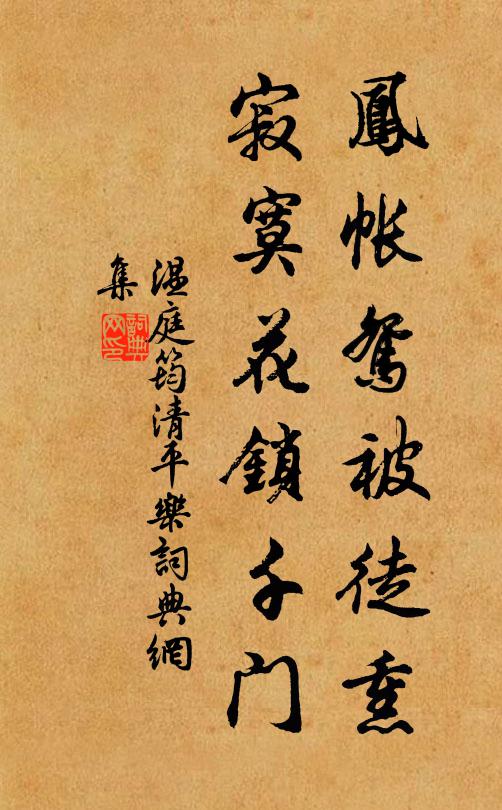 鳳帐鸳被徒熏
寂寞花鎖千門
温庭筠清平樂詞典網
集
詞典
网印